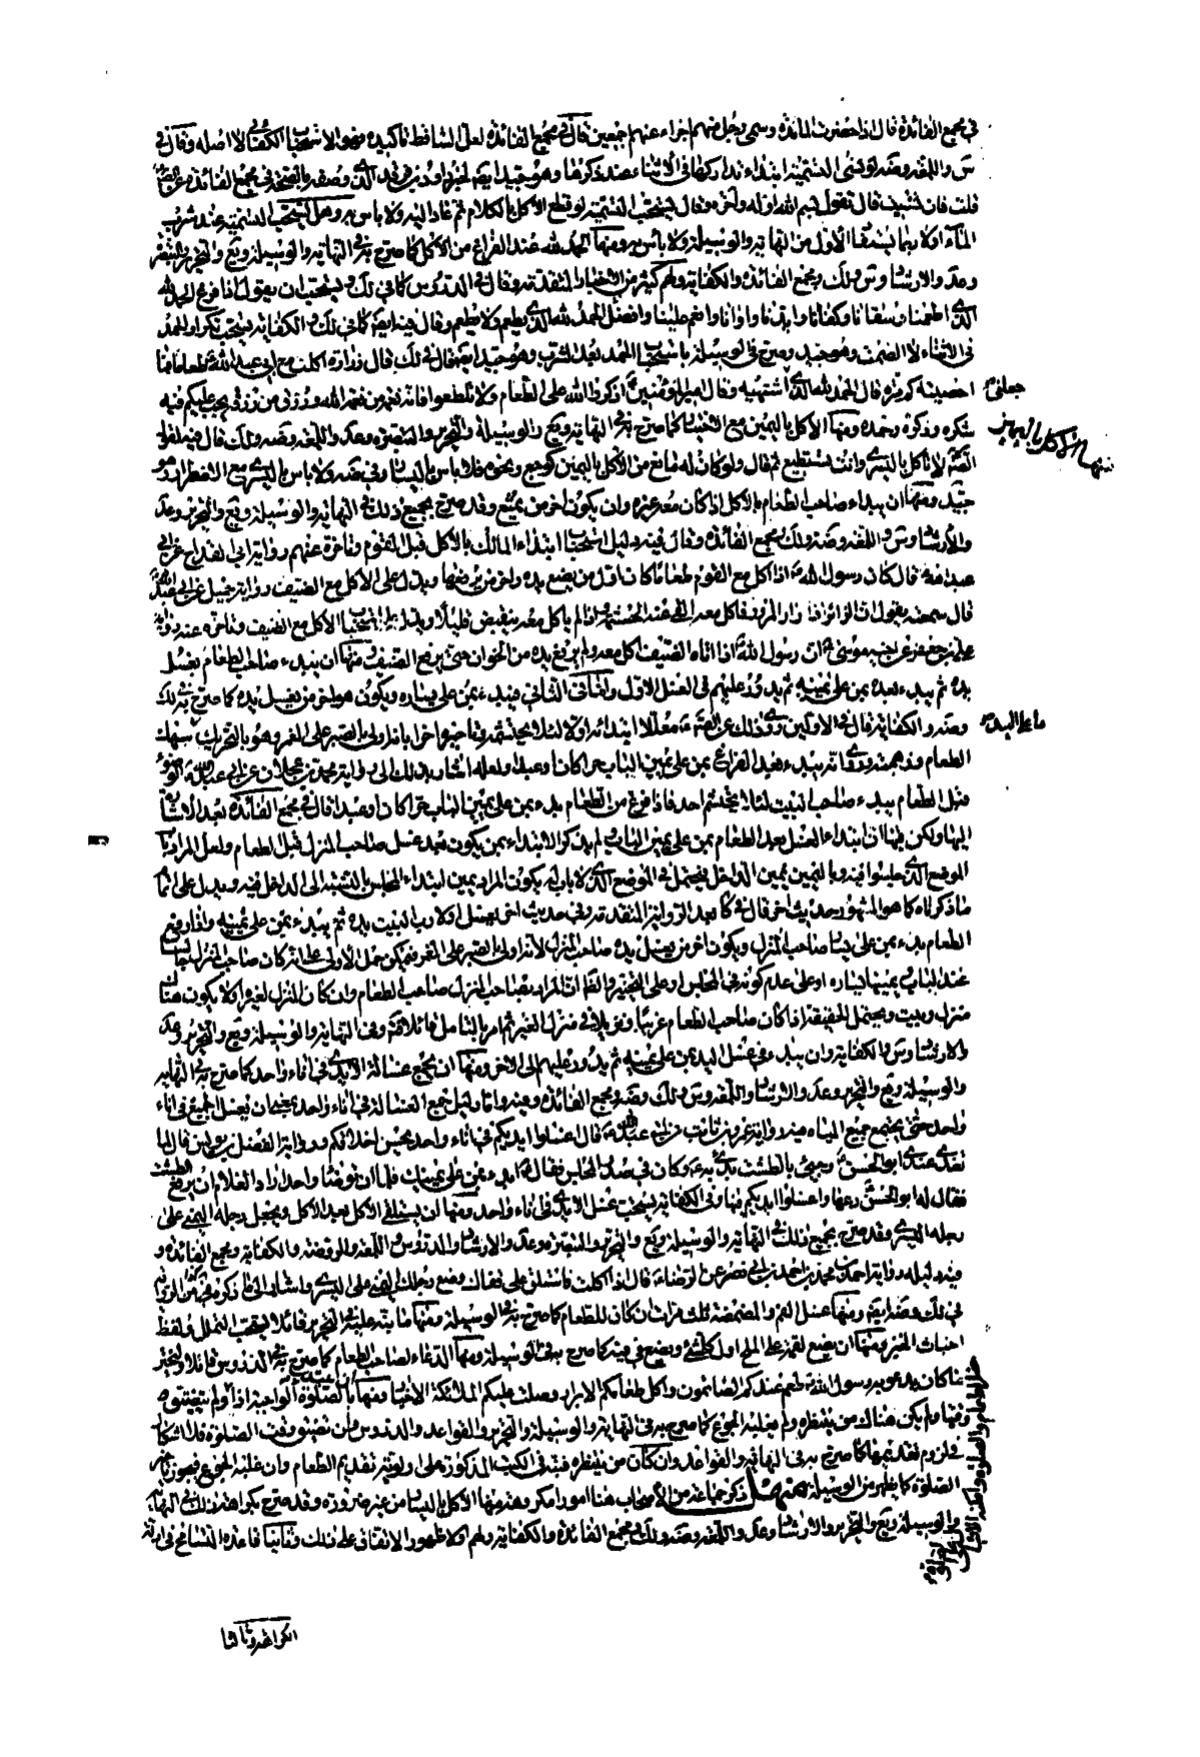 في مجمع الفائدة قال اذا حضرت المائدة وسمى رجل منهم اجزاء عنهم اجمعين قال في مجمع الفائدة لعل الساقط تاكيده لا اصله وقال في
س واللمعه وضه لو نسى التسمية ابتداء تداركها في الاثناء عند ذكرها وهو جيد
قلت فان نسيت قال تقول بسم الله اوله وآخره وقال يستحب التسمية لو قطع الاكل بالكلام ثم عاد اليه ولا باس به وهل يستحب التسمية عند شرب
الماء اولا الاول من النهاية والوسيلة ولا باس به ومنها الحمد لله عند الفراغ من الاكل كما صرح به في النهاية والوسيلة ويع والتحرير
وعد والارشاد وس ولك ومجمع الفائدة والكفاية ولهم كثير من الاخبار المتقدمة وقال في الدروس كما في لك يستحب ان يقول اذا فرغ الحمد لله
الذي اطعمنا وسقانا وكفانا وايدنا واوانا وانعم علينا وافضل الحمد لله الذي يطعم ولا يطعم وقال فيه ايضا كما في لك والكفاية يستحب تكرار الحمد
في الاثناء لا الصمت وهو جيد وصرح في الوسيلة باستحباب الحمد بعد الشرب وهو جيد ايضا قال في لك قال زرارة اكلت مع ابي عبد الله طعاما فما
احصيت كم مرة قال الحمد لله الذي اشتهيه وقال امير المؤمنين اذكروا الله على الطعام ولا تلغطوا فانه نعمة من نعم الله ورزق من رزقه يجب عليكم فيه
جعلني
شكره وذكره وحمده ومنها الاكل باليمين مع الاختيار كما صرح به في النهاية ويع والوسيلة والتحرير والتبصرة وعد واللمعه وضه ولك قال فيه
منها الاكل باليمين
لا تاكل باليسرى وانت تستطيع ثم قال ولو كان له مانع من الاكل باليمين كوجع ونحوه فلا باس باليسار وفي ضه ولا باس باليسرى مع الاضطرار وهو
جيد ومنها ان يبدء صاحب الطعام بالاكل اذا كان معه غيره وان يكون اخر من يمتنع وقد صرح بجميع ذلك في النهاية والوسيلة ويع والتحرير وعد
والارشاد وس واللمعه وضه ولك ومجمع الفائدة وقال فيه دليل استحباب ابتداء المالك بالاكل قبل القوم وتاخره عنهم رواية ابن القداح عن ابي
عبد الله قال كان رسول الله اذا اكل مع القوم طعاما كان اول من يضع يده واخر من يرفعها ويدل على الاكل مع الضيف رواية جميل عن ابي عبد الله
قال سمعته يقول ان الزائر اذا زار المزور فاكل معه القى عنه الحشمة واذا لم ياكل معه ينقبض قليلا ويدل على استحباب الاكل مع الضيف وتاخره عنه رواية
علي بن جعفر عن اخيه موسى ان رسول الله اذا اتاه الضيف اكل معه ولم يرفع يده من الخوان حتى يرفع الضيف ومنها ان يبدء صاحب الطعام بغسل
يده ثم يبدء بعده بمن على يمينه ثم يدور عليهم في الغسل الاول وفي الثاني يبدء بمن على يساره ويكون هو اخر من يغسل يده كما صرح به في لك
وضه والكفاية قال في الاولين وروى ذلك عن الصادق معللا ابتدائه اولا لئلا يحتشمه احد وتاخره اخرا بانه اولى بالصبر على الغمر وهو بالتحريك
ما على اليد
الطعام وزهمته وروى انه يبدء بعد الفراغ بمن على يمين الباب حرا كان او عبدا ولعله اشار بذلك الى رواية محمد بن عجلان عن ابي عبد الله الوضوء
قبل الطعام يبدء صاحب البيت لئلا يحتشم احد فاذا فرغ من الطعام بدء بمن على يمين الباب حرا كان او عبدا قال في مجمع الفائدة بعد الاشارة
اليها ولكن فيها ان ابتداء الغسل بعد الطعام بمن على يمين الباب ولم يذكر الابتداء بمن يكون بعد غسل صاحب المنزل قبل الطعام ولعل المراد
الموضع الذي جلسوا فيه وباليمين يمين الداخل فيحتمل في الموضع الذي لا باب له يكون المراد يمين ابتداء المجلس بالنسبة الى الداخل فيه ويدل على
ما ذكرناه كما هو المشهور حديث اخر قال في كا بعد الرواية المتقدمة وفي حديث اخر يغسل اولا رب البيت يده ثم يبدء بمن على يمينه واذا رفع
الطعام بدء بمن على يسار صاحب المنزل ويكون اخر من يغسل يده صاحب المنزل لانه اولى بالصبر على الغمر فيمكن حمل الاولى على انه كان صاحب المنزل
عند الباب يمينها يساره او على عدم كونه في المجلس او على التخيير والظاهر ان المراد بصاحب المنزل صاحب الطعام وان كان المنزل لغيره اولا يكون هناك
منزل وبيت ويحتمل الحقيقة اذا كان صاحب الطعام غريبا في منزل الغير ثم امر بالتامل وفي النهاية والوسيلة ويع والتحرير وعد
والارشاد وس والكفاية وان يبدء في غسل اليد بمن على يمينه ثم يدور عليهم الى الاخر ومنها ان يجمع غسالة الايدي في اناء واحد كما صرح به في النهاية
والوسيلة ويع والتحرير وعد والارشاد واللمعه وس ولك وضه ومجمع الفائدة وفيه واما دليل جمع الغسالة في اناء واحد يعني ان يغسل الجميع في اناء
واحد حتى يجتمع جميع المياه فيه رواية عمرو بن ثابت عن ابي عبد الله قال اغسلوا ايديكم في اناء واحد يحسن اخلاقكم ورواية الفضل بن يونس قال لما
تغدى عندي ابو الحسن وجيئ بالطشت بدئ به وكان في صدر المجلس فقال ابدء بمن على يمينك فلما ان توضأ واحد اراد الغلام ان يرفع الطشت
فقال له ابو الحسن دعها واغسلوا ايديكم فيها وفي الكفاية يستحب غسل الايدي في اناء واحد ومنها ان يستلقي الاكل بعد الاكل ويجعل رجله اليمنى على
رجله اليسرى وقد صرح بجميع ذلك في النهاية والوسيلة ويع والتحرير والتبصرة وعد والارشاد والدروس واللمعه والروضه والكفاية ومجمع الفائدة و
فيه دليله رواية احمد بن محمد بن ابي نصر عن الرضا قال اذا اكلت فاستلق على قفاك وضع رجلك اليمنى على اليسرى واشار الى ما ذكر
في لك وضه ايضا ومنها غسل الفم والمضمضة ثلث مرات ان كان للطعام كما صرح به في الوسيلة ومنها ما نبه عليه في التحرير قائلا يستحب التخلل ولفظ
ومنها ان يضع لقمة على الملح اول كل شيء ويضع في فيه كما صرح به في الوسيلة ومنها الدعاء لصاحب الطعام كما صرح به في الدروس قائلا
بما كان يدعو به رسول الله طعم عندكم الصائمون واكل طعامكم الابرار وصلت عليكم الملائكة الاخيار ومنها بالصلوة الواجبة اذا لم يتضيق
وقتها ولم يكن هناك من ينتظره ولم يغلبه الجوع كما صرح به في النهاية والوسيلة والتحرير والقواعد والدروس وان تضيق وقت الصلوة فلا اشكال
في لزوم تقديمها كما صرح به في النهاية والقواعد وان كان من ينتظره فبقي في الكتب المذكورة على اولوية تقديم الطعام وان غلبه الجوع فيجوز تاخير
الصلوة كما يظهر من الوسيلة منها ذكر جماعة من الاصحاب هنا امورا مكروهة منها الاكل باليسار من غير ضرورة وقد صرح بكراهة ذلك في النهاية
والوسيلة ويع والتحرير والارشاد وعد واللمعه وضه ولك ومجمع الفائدة والكفاية ولهم اولا ظهور الاتفاق على ذلك وثانيا قاعدة التسامح في ادلة
الكراهة وثالثا